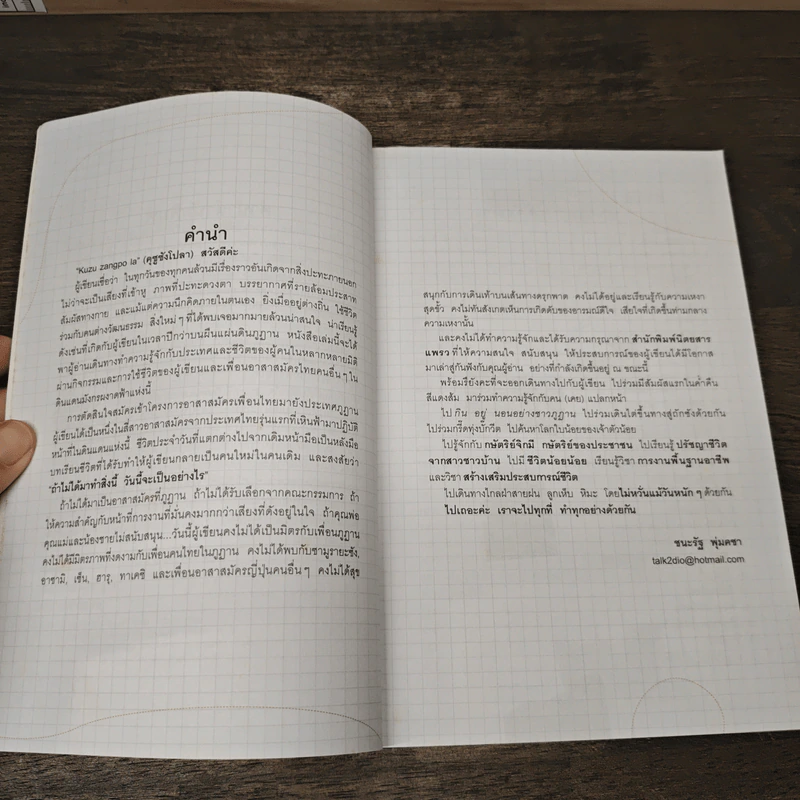 คำนำ
"Kuzu zangpo la" (คุซูซังโปลา) สวัสดีค่ะ
ผู้เขียนเชื่อว่า ในทุกวันของทุกคนล้วนมีเรื่องราวอันเกิดจากสิ่งปะทะภายนอก
ไม่ว่าจะเป็นเสียงที่เข้าหู ภาพที่ปะทะดวงตา บรรยากาศที่รายล้อมประสาท
สัมผัสทางกาย และแม้แต่ความนึกคิดภายในตนเอง ยิ่งเมื่ออยู่ต่างถิ่น ใช้ชีวิต
ร่วมกับคนต่างวัฒนธรรม สิ่งใหม่ๆ ที่ได้พบเจอมากมายล้วนน่าสนใจ น่าเรียนรู้
ดังเช่นที่เกิดกับผู้เขียนในเวลาปีกว่าบนผืนแผ่นดินภูฏาน หนังสือเล่มนี้จะได้
พาผู้อ่านเดินทางทำความรู้จักกับประเทศและชีวิตของผู้คนในหลากหลายมิติ
ผ่านกิจกรรมและการใช้ชีวิตของผู้เขียนและเพื่อนอาสาสมัครไทยคนอื่นๆ ใน
ดินแดนมังกรผงาดฟ้าแห่งนี้
การตัดสินใจสมัครเข้าโครงการอาสาสมัครเพื่อนไทยมายังประเทศภูฏาน
ผู้เขียนได้เป็นหนึ่งในสี่สาวอาสาสมัครจากประเทศไทยรุ่นแรกที่เหินฟ้ามาปฏิบัติ
หน้าที่ในดินแดนแห่งนี้ ชีวิตประจำวันที่แตกต่างไปจากเดิมหน้ามือเป็นหลังมือ
บทเรียนชีวิตที่ได้รับทำให้ผู้เขียนกลายเป็นคนใหม่ในคนเดิม และสงสัยว่า
"ถ้าไม่ได้มาทำสิ่งนี้ วันนี้จะเป็นอย่างไร"
ถ้าไม่ได้มาเป็นอาสาสมัครที่ภูฏาน ถ้าไม่ได้รับเลือกจากคณะกรรมการ ถ้า
ให้ความสำคัญกับหน้าที่การงานที่มั่นคงมากกว่าเสียงที่ดังอยู่ในใจ ถ้าคุณพ่อ
คุณแม่และน้องชายไม่สนับสนุน...วันนี้ผู้เขียนคงไม่ได้เป็นมิตรกับเพื่อนภูฏาน
คงไม่ได้มีมิตรภาพที่งดงามกับเพื่อนคนไทยในภูฏาน คงไม่ได้พบกับซามูรายะซัง,
อาซามิ, เซ็น, ฮารุ, ทาเคชิ และเพื่อนอาสาสมัครญี่ปุ่นคนอื่นๆ คงไม่ได้สุข
สนุกกับการเดินเท้าบนเส้นทางตรุกพาด คงไม่ได้อยู่และเรียนรู้กับความเหงา
สุดขั้ว คงไม่ทันสังเกตเห็นการเกิดดับของอารมณ์ดีใจ เสียใจที่เกิดขึ้นท่ามกลาง
ความเหงานั้น
และคงไม่ได้ทำความรู้จักและได้รับความกรุณาจาก สำนักพิมพ์นิตยสาร
แพรว ที่ให้ความสนใจ สนับสนุน ให้ประสบการณ์ของผู้เขียนได้มีโอกาส
มาเล่าสู่กันฟังกับคุณผู้อ่าน อย่างที่กำลังเกิดขึ้นอยู่ ณ ขณะนี้
พร้อมรึยังคะที่จะออกเดินทางไปกับผู้เขียน ไปร่วมมีสัมผัสแรกในค่ำคืน
สีแดงส้ม มาร่วมทำความรู้จักกับคน (เคย) แปลกหน้า
ไป กิน อยู่ นอนอย่างชาวภูฏาน ไปร่วมเดินไต่ขึ้นทางสู่ถักซังด้วยกัน
ไปร่วมกรี๊ดทุ่งบักวีต ไปค้นหาโลกใบน้อยของเจ้าตัวน้อย
ไปรู้จักกับ กษัตริย์จิกมี กษัตริย์ของประชาชน ไปเรียนรู้ ปรัชญาชีวิต
จากสาวชาวบ้าน ไปมี ชีวิตน้อยน้อย เรียนรู้วิชา การงานพื้นฐานอาชีพ
และวิชา สร้างเสริมประสบการณ์ชีวิต
ไปเดินทางไกลฝ่าสายฝน ลูกเห็บ หิมะ โดยไม่หวั่นแม้วันหนักๆ ด้วยกัน
ไปเถอะค่ะ เราจะไปทุกที่ ทำทุกอย่างด้วยกัน
ชนะรัฐ พุ่มคชา
talk2dio@hotmail.com